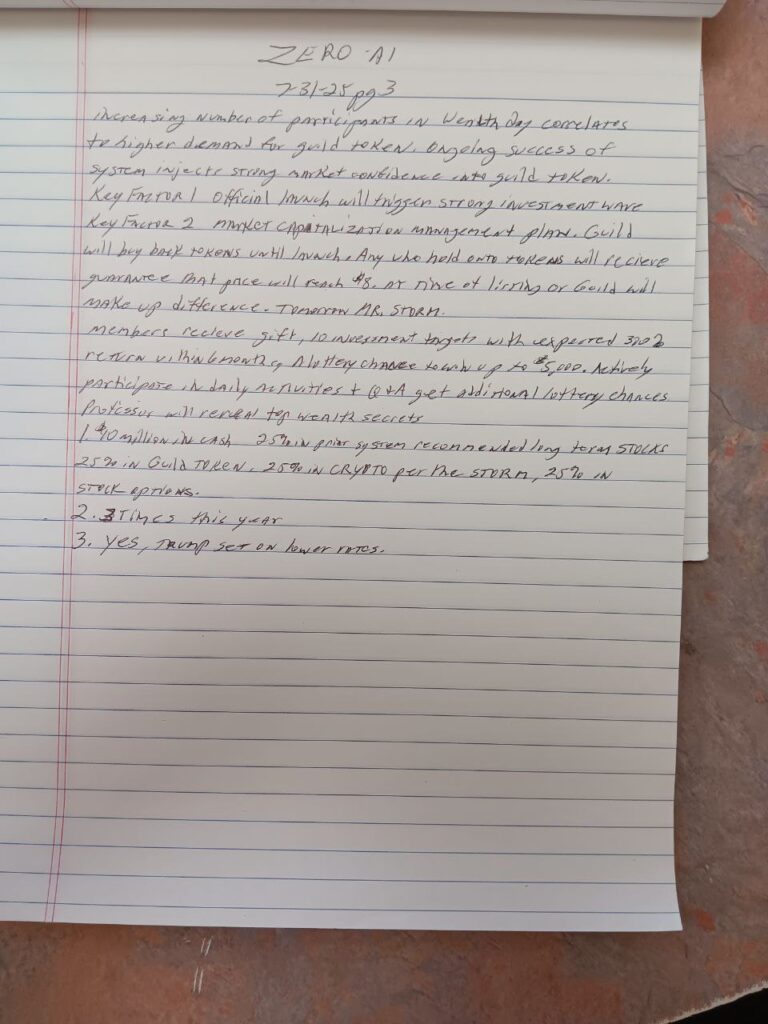 ZERO-AI
7-31-25 pg 3
increasing number of participants in Wealth Day correlates
to higher demand for guild token. Ongoing success of
system injects strong market confidence into guild token.
Key Factor 1 Official launch will trigger strong investment wave
Key Factor 2 market capitalization management plan. Guild
will buy back tokens until launch. Any who hold onto tokens will recieve
guarantee that price will reach $8. at time of listing or Guild will
make up difference. Tomorrow MR. STORM.
Members recieve gift, 10 investment targets with expected 300%
return within 6 months, A lottery chance to win up to $5,000. Actively
participate in daily activities + Q+A get additional lottery chances
Professor will reveal top wealth secrets
1. $10 million in cash 25% in prior system recommended long term STOCKS
25% in Guild TOKEN. 25% in CRYPTO per the STORM, 25% in
STOCK OPTIONS.
2. 3 Times this year
3. yes, TRUMP set on lower rates.